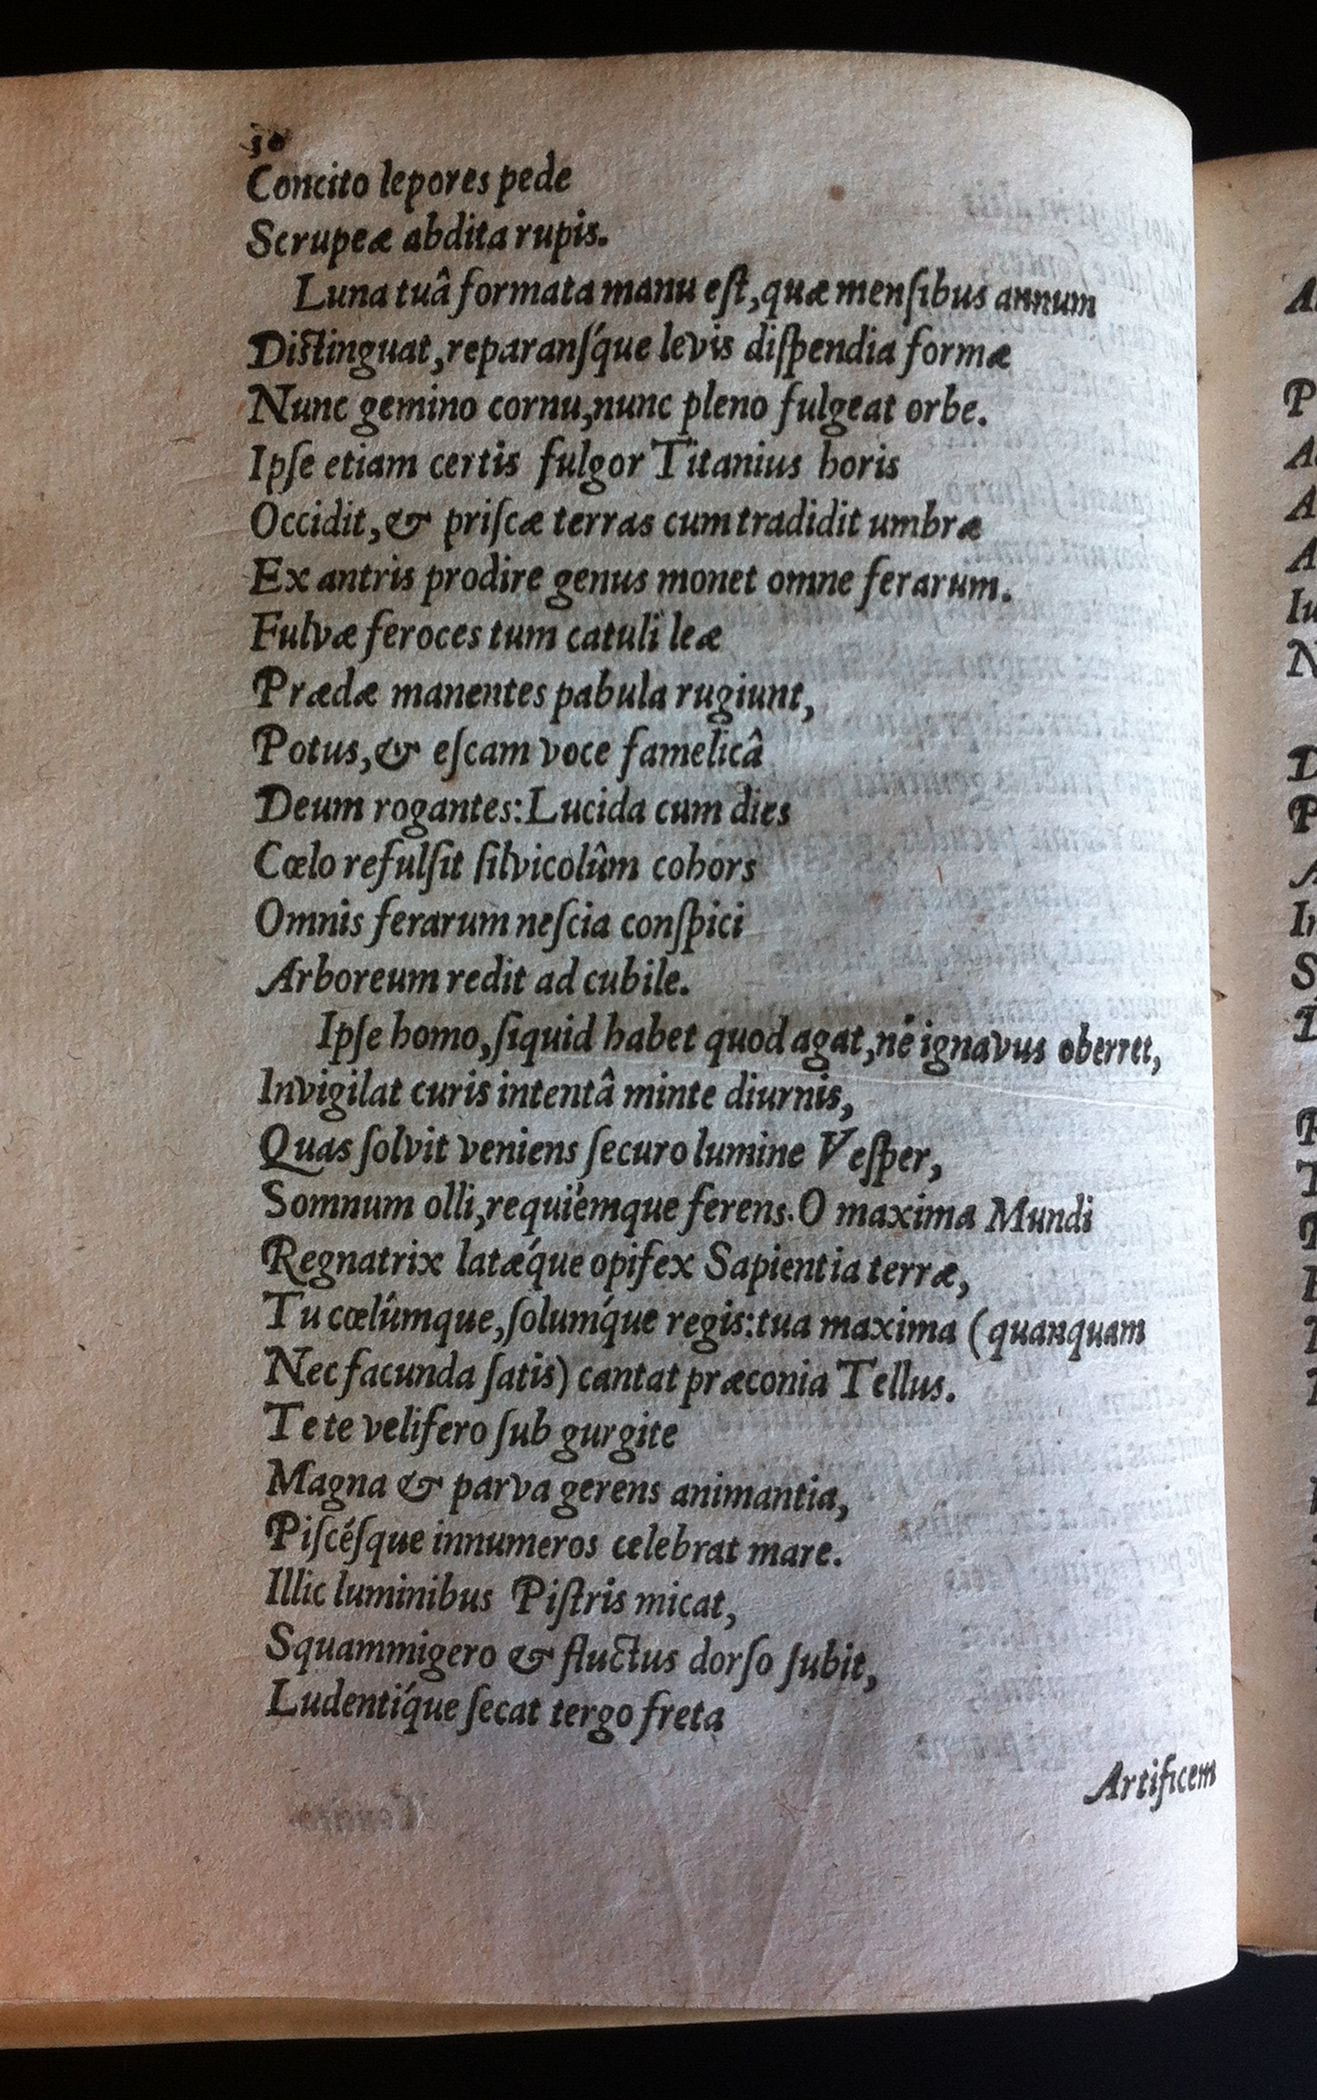 30
Concito lepores pede
Scrupeæ abdita rupis.
Luna tuâ formata manu eſt, quæ menſibus annum
Diſtinguat, reparanſq́ue levis diſpendia formæ
Nunc gemino cornu, nunc pleno fulgeat orbe.
Ipſe etiam certis fulgor Titanius horis
Occidit, & priſcæ terras cum tradidit umbræ
Ex antris prodire genus monet omne ferarum.
Fulvæ feroces tum catuli leæ
Prædæ manentes pabula rugiunt,
Potus, & eſcam voce famelicâ
Deum rogantes: Lucida cum dies
Cœlo refulſit ſilvicolûm cohors
Omnis ferarum neſcia conſpici
Arboreum redit ad cubile.
Ipſe homo, ſiquid habet quod agat, né ignavus oberret,
Invigilat curis intentâ minte diurnis,
Quas ſolvit veniens ſecuro lumine Veſper,
Somnum olli, requiémque ferens. O maxima Mundi
Regnatrix latæq́ue opifex Sapientia terræ,
Tu cœlúmque, ſolumq́ue regis: tua maxima (quanquam
Nec facunda ſatis) cantat præconia Tellus.
Te te velifero ſub gurgite
Magna & parva gerens animantia,
Piſcéſque innumeros celebrat mare.
Illic luminibus Piſtris micat,
Squammigero & fluctus dorſo ſubit,
Ludentiq́ue ſecat tergo freta
Artificem